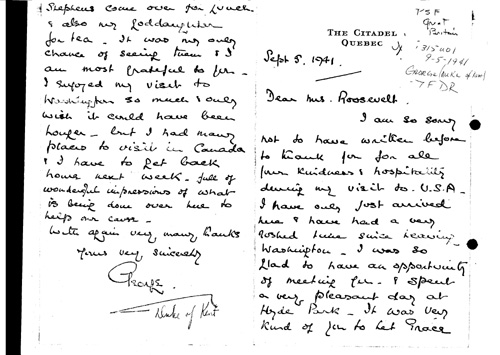 THE CITADEL
QUEBEC
Sept 5. 1941.
Dear Mrs. Roosevelt.
I am so sorry
not to have written before
to thank you for all
your kindness & hospitality
during my visit to U.S.A.
I have only just arrived
here & have had a very
rushed time since leaving
Washington. I was so
glad to have an opportunity
of meeting you. & spent
a very pleasant day at
Hyde Park. It was very
kind of you to let Grace
Stephens come over for lunch
& also my Goddaughter
for tea. It was my only
chance of seeing them & I
am most grateful to you.
I enjoyed my visit to
Washington so much & only
wish it could have been
longer - but I had many
places to visit in Canada
& I have to get back
home next week. full of
wonderful impressions of what
is being done over here to
help our cause.
With again very many thanks
Yours very sincerely
George.
Duke of Kent
PSF
Great
Britain
9-5-1941
George, Duke of Kent
- FDR